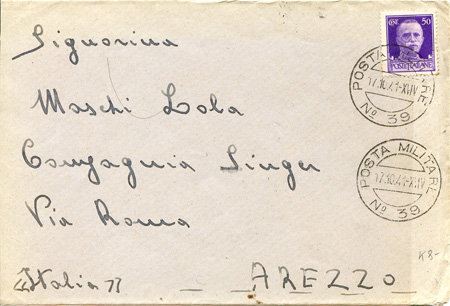 Signorina
CENT. 50
POSTE ITALIANE
POSTA MILITARE
17.10.41-XIX
N° 39
Maschi Lola
Compagnia Singer
POSTA MILITARE
17.10.41-XIX
N° 39
Via Roma
K8-
"Italia" AREZZO